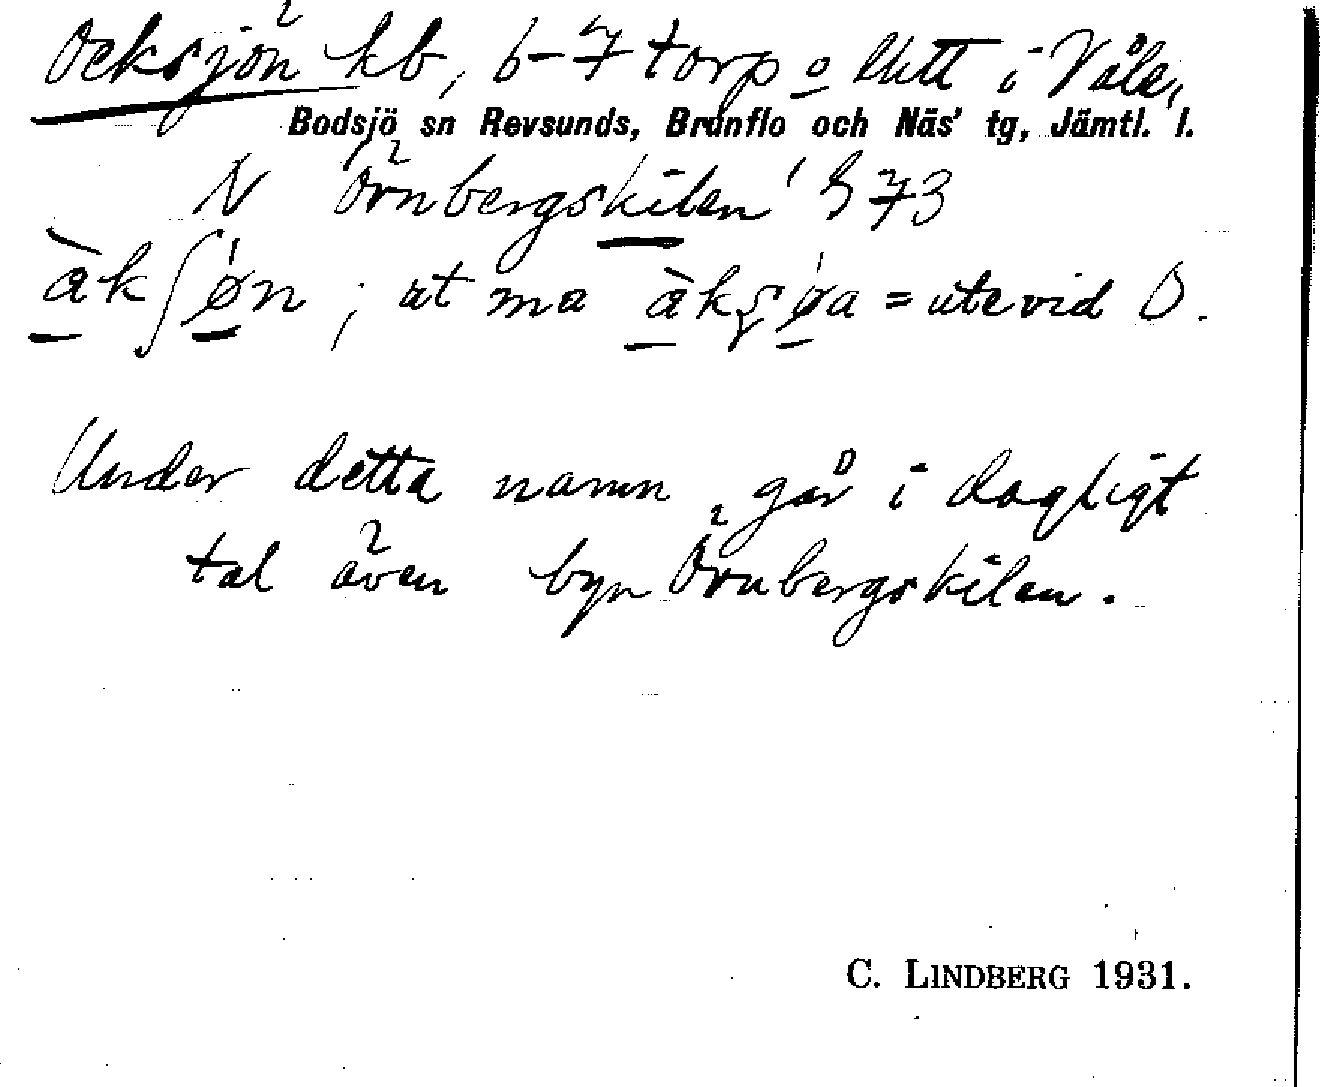 Ocksjön hb, 6-7 torp o lhtt i Våle,
Bodsjö sn Revsunds, Brunflo och Näs' tg, Jämtl. l.
N Örnbergskilen' 73
àkʃøn; at ma àkʂøa = ute vid O.
Under detta namn går i dagligt
tal även byn Örnbergskilen.
C. LINDBERG 1931.